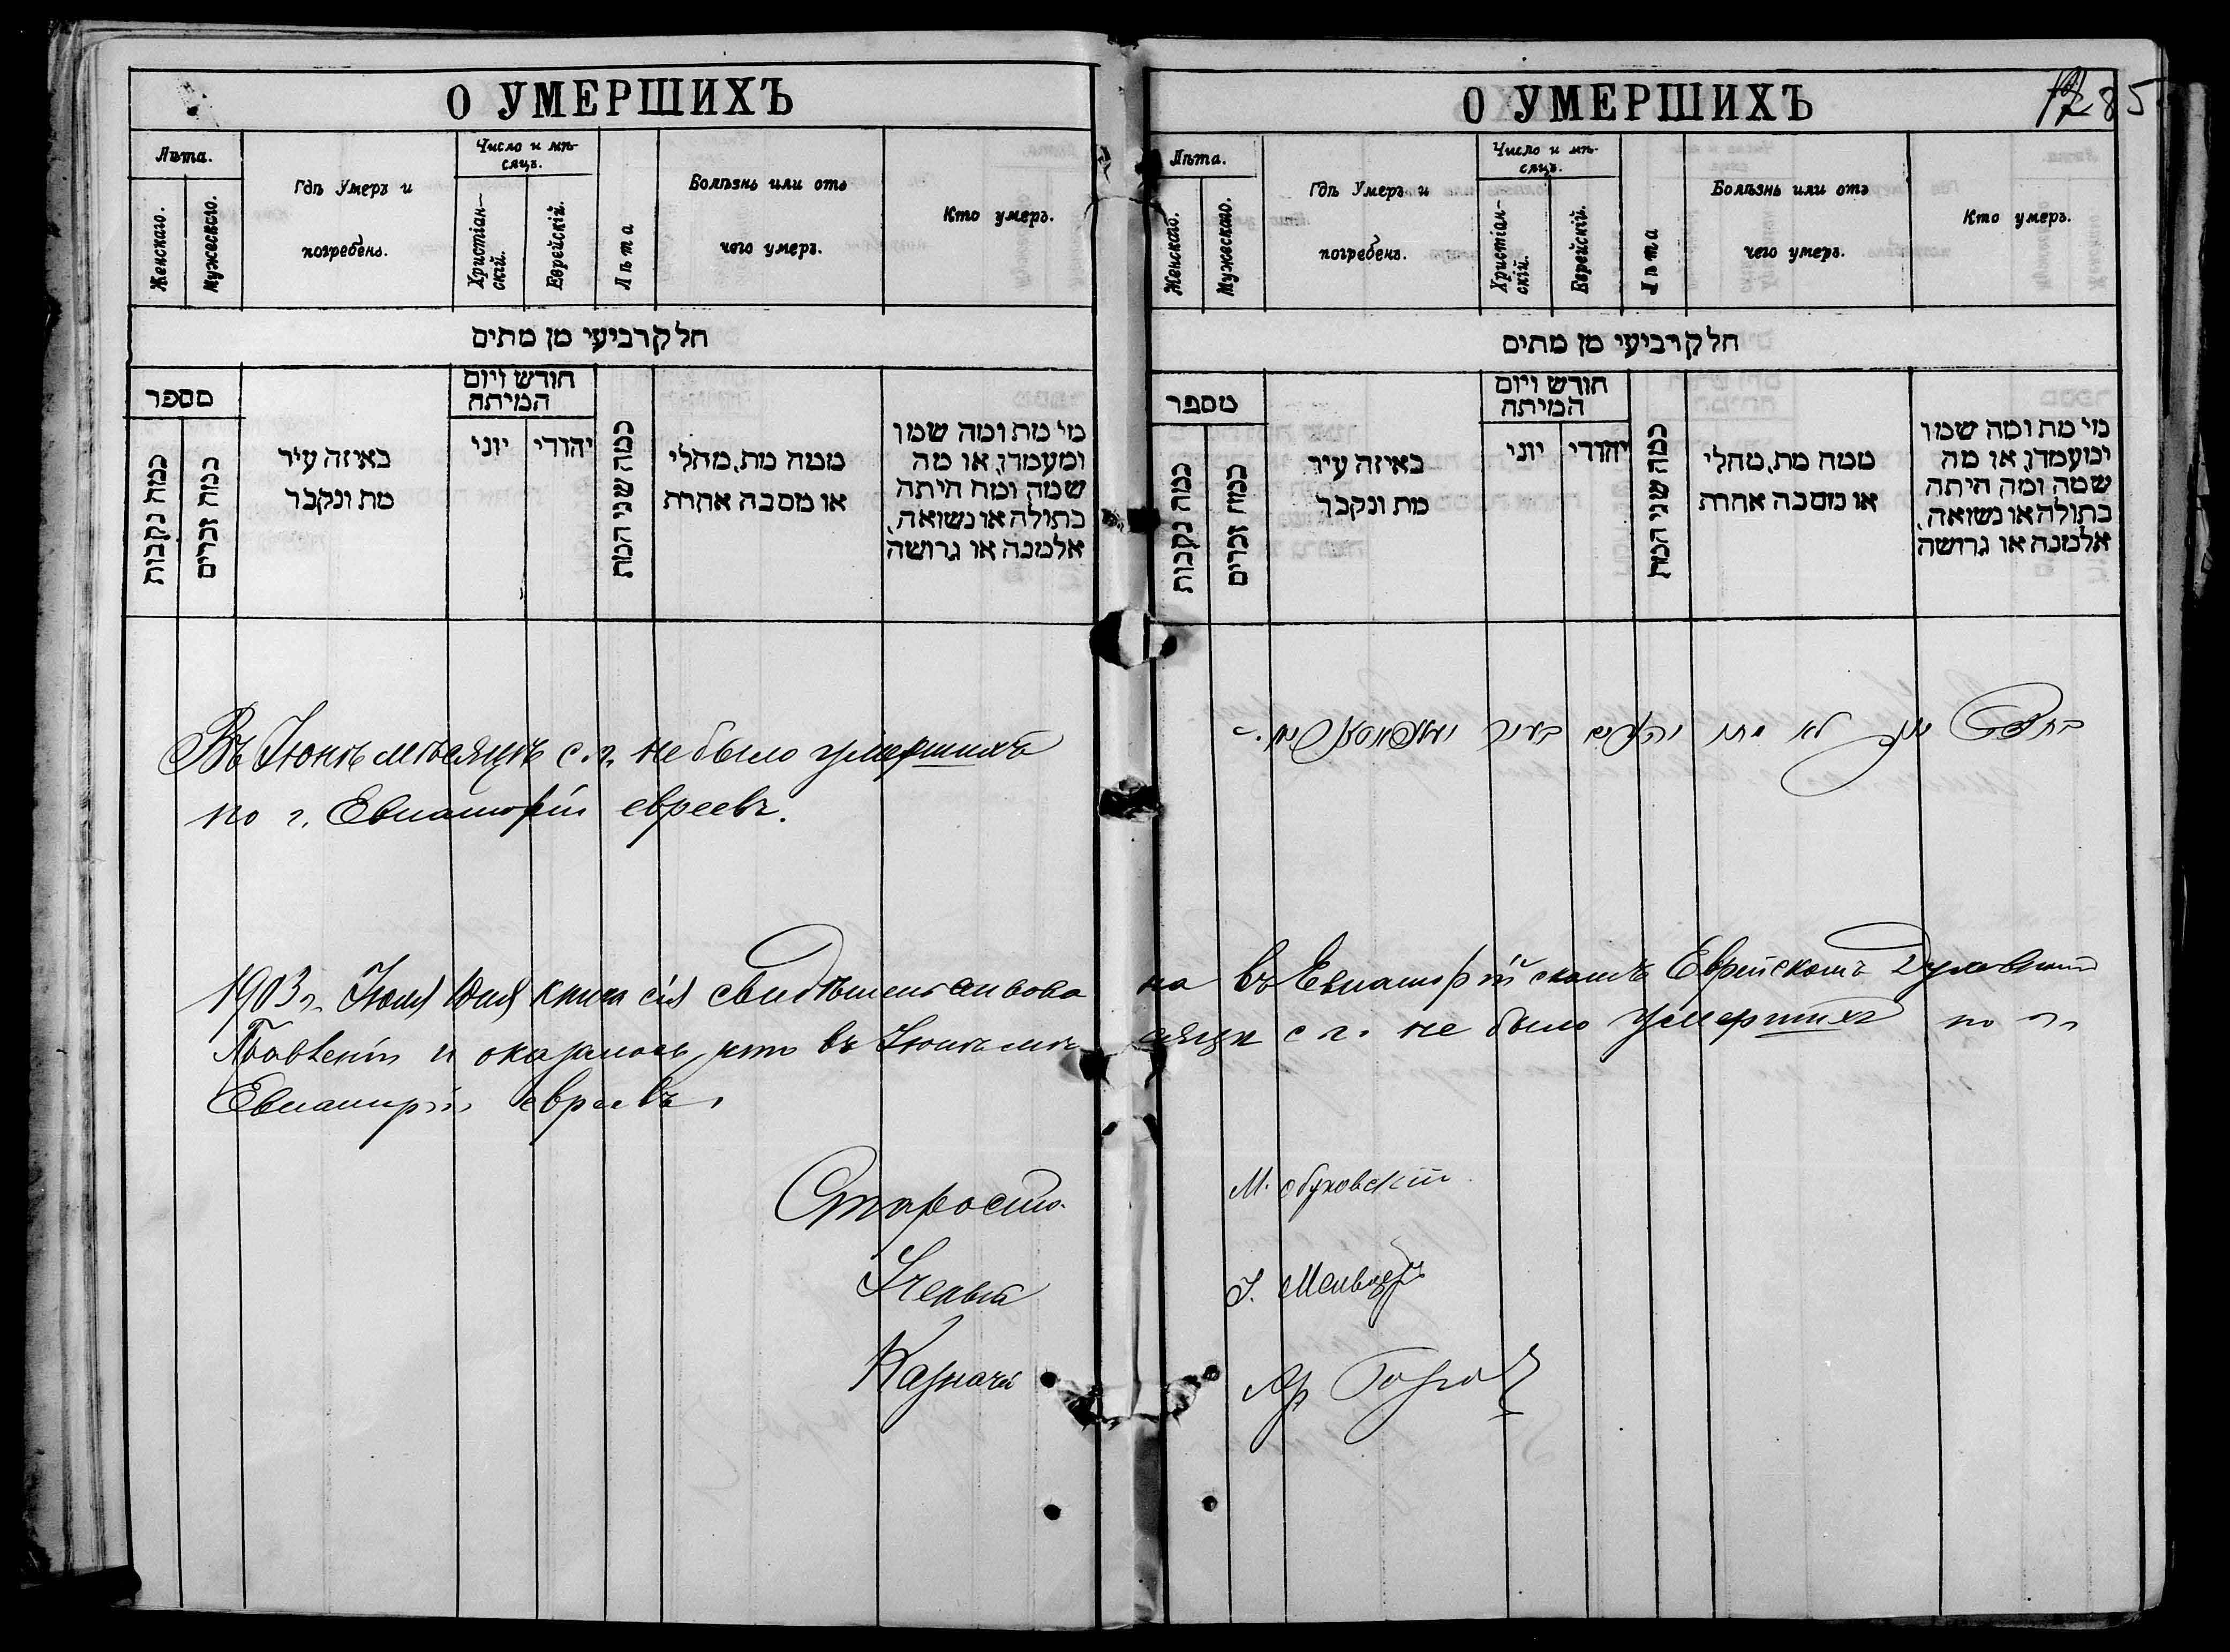 О УМЕРШИХЪ
Лѣта.
Женскаго.
Мужескаго.
Гдѣ Умеръ и
погребенъ.
Число и мѣ-
сяцъ.
Христіан-
скій.
Еврейскій.
Лѣта
Болѣзнь или отъ
чего умеръ.
Кто умеръ.
חלק רביעי מן מתים
מספר
כמה נקבות
כמה זכרים
באיזה עיר
מת ונקבר
חודש ויום
המיתה
יוני
יהודי
כמה שני המת
ממה מת, מחלי
או מסבה אחרת
מי מת ומה שמו
ומעמדו, או מה
שמה ומה היתה
בתולה או נשואה,
אלמנה או גרושה
Въ Іюнѣ мѣсяцѣ с. г. не было умершихъ
по г. Евпаторіи евреевъ.
О УМЕРШИХЪ
85
Лѣта.
Женскаго.
Мужескаго.
Гдѣ Умеръ и
погребенъ.
Число и мѣ-
сяцъ.
Христіан-
скій.
Еврейскій.
Лѣта
Болѣзнь или отъ
чего умеръ.
Кто умеръ.
חלק רביעי מן מתים
מספר
כמה נקבות
כמה זכרים
באיזה עיר
מת ונקבר
חודש ויום
המיתה
יוני
יהודי
כמה שני המת
ממה מת, מחלי
או מסבה אחרת
מי מת ומה שמו
ומעמדו, או מה
שמה ומה היתה
בתולה או נשואה,
אלמנה או גרושה
בחדש לא מתו בעיר
1903 г. Іюля дня книга сія свидѣтельствова на въ Евпаторійскомъ Еврейскомъ Духовномъ
Правленіи и оказалось, что въ Іюнѣ мѣ сяцѣ с. г. не было умершихъ по г.
Евпаторіи евреевъ.
Староста М. Обуховскій
Ученый І.
Казначей